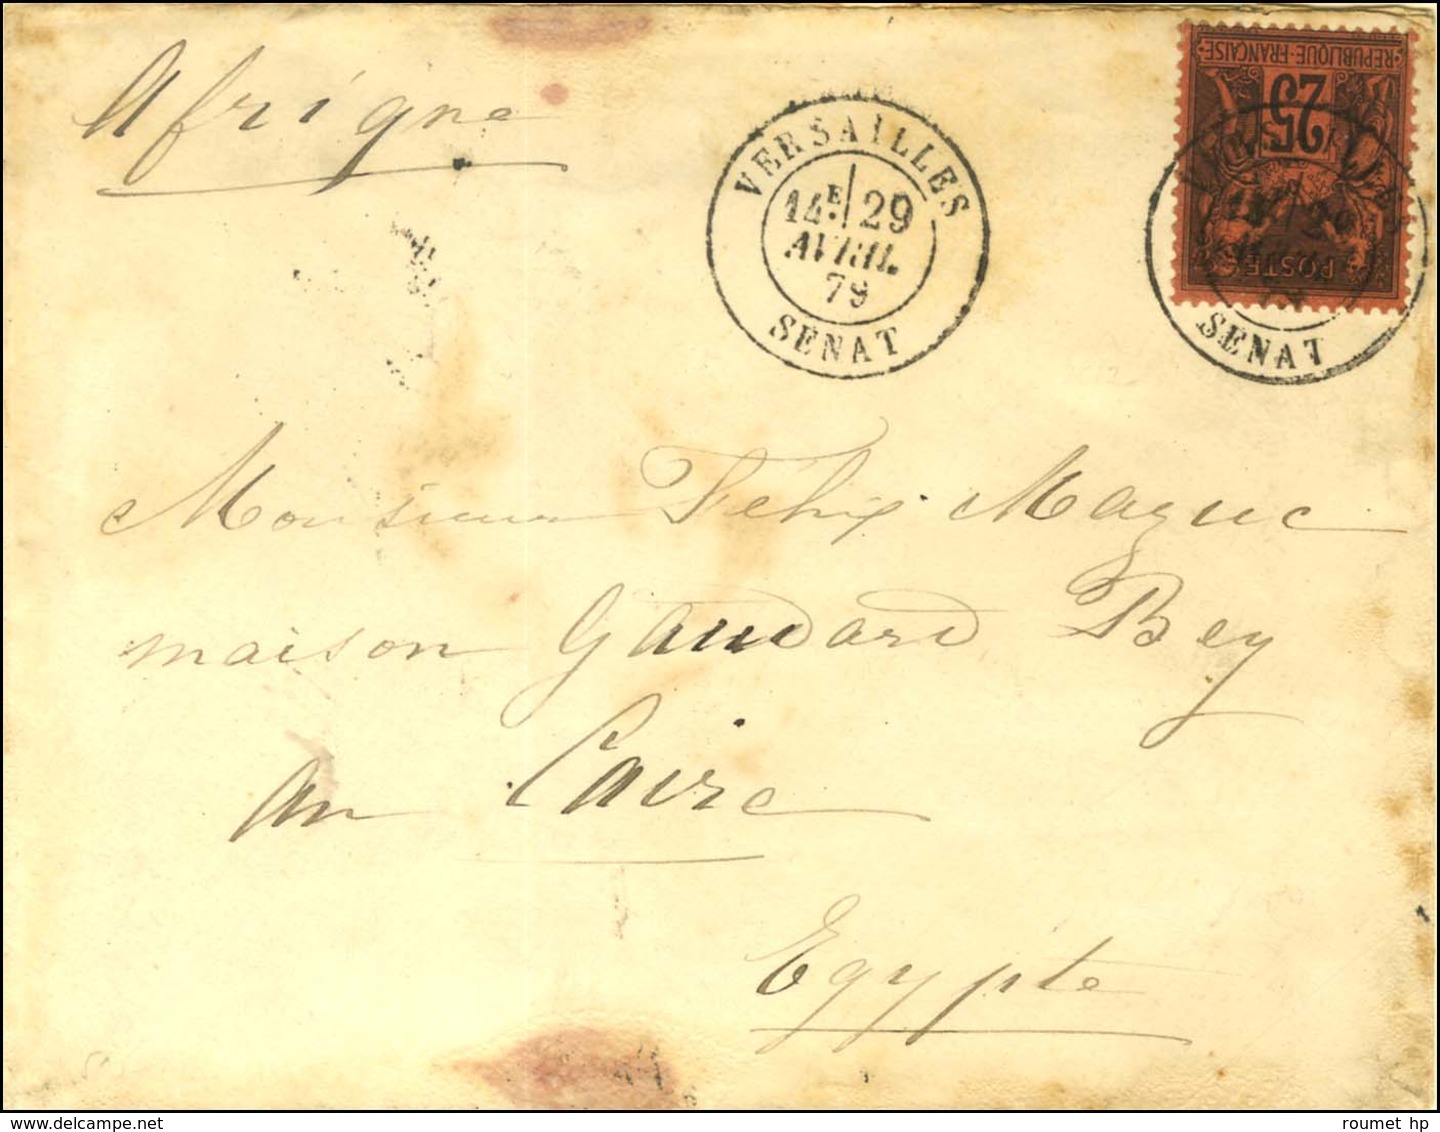 Afrique
VERSAILLES
14E 29
AVRIL
79
SENAT
RÉPUBLIQUE FRANÇAISE
25
POSTES
SENAT
Monsieur Felix Mazuc
maison Gaudard Bey
au Caire
Egypte
roumet hp